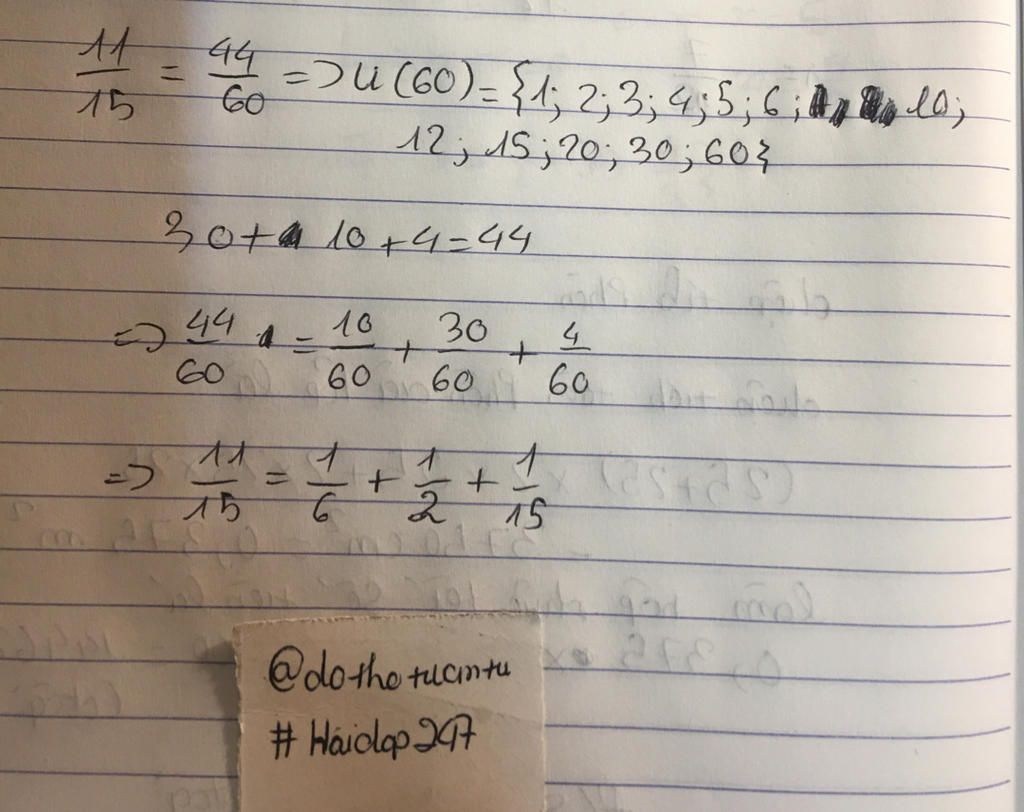 11/15 = 44/60 => Ư(60) = {1; 2; 3; 4; 5; 6; 10;
12; 15; 20; 30; 60}
30 + 10 + 4 = 44
=> 44/60 = 10/60 + 30/60 + 4/60
=> 11/15 = 1/6 + 1/2 + 1/15
@dothetuantu
# Hỏidap247